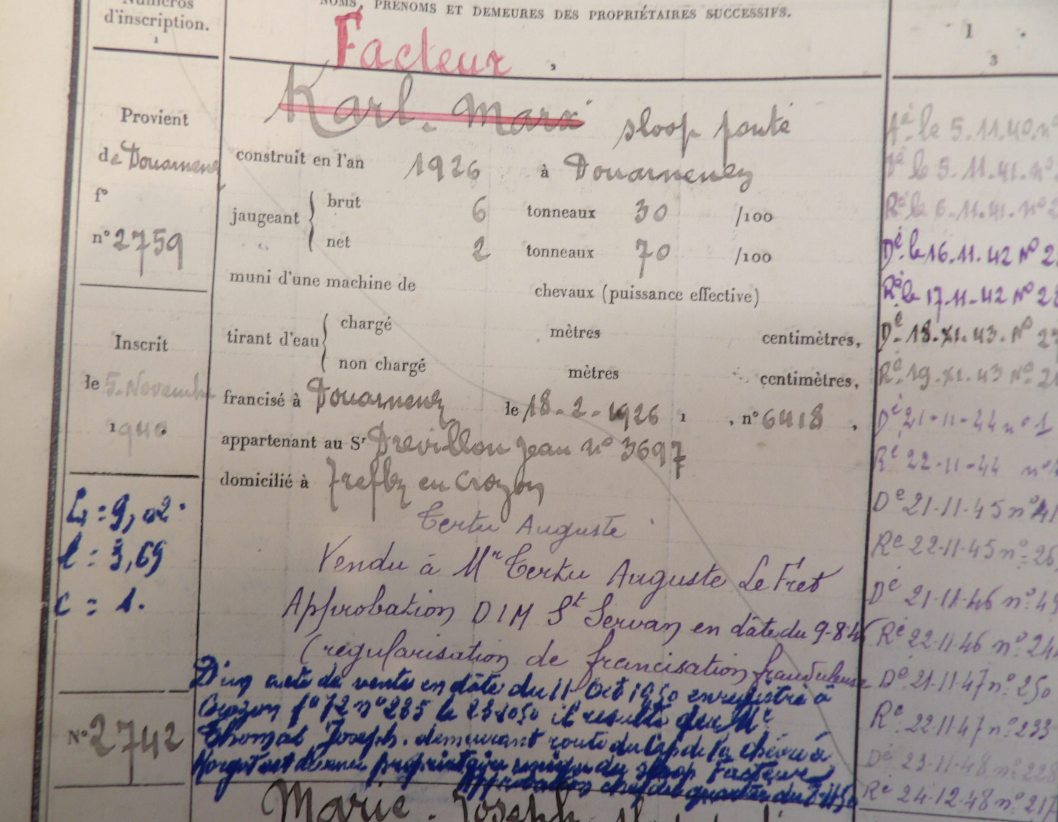 Numéros
d'inscription.
1
NOMS, PRÉNOMS ET DEMEURES DES PROPRIÉTAIRES SUCCESSIFS.
1
3
Facteur,
Karl-Marx sloop ponté
Provient
de Douarnenez
f°
n° 2759
construit en l'an 1926 à Douarnenez
jaugeant { brut 6 tonneaux 30 /100
net 2 tonneaux 70 /100
muni d'une machine de chevaux (puissance effective)
Inscrit
le 5. Novembre
1940.
tirant d'eau { chargé mètres centimètres,
non chargé mètres centimètres,
francisé à Douarnenez le 18-2-1926, n° 6418,
appartenant au Sr Drevillon Jean n° 3697
domicilié à Treflez en Crozon
L = 9,02
l = 3,69
c = 1.
Tertu Auguste
Vendu à Mr Tertu Auguste Le Fret
Approbation DIM St Servan en date du 9-8-4
(régularisation de francisation frauduleuse
D'un acte de vente en date du 11 Oct 1950 enregistré à
Crozon f° 72 n° 285 le il resulte que Mr
Thomas Joseph. demeurant route du Cap de la chèvre à
Morgat est devenu propriétaire unique du sloop Facteur
Approbation chef du quartier du
N° 2742
Marie-Joseph
Dé le 5.11.40 n°
Dé le 5.11.41. n°
Ré le 6.11.41. n° 2
Dé le 16.11.42 N° 2
Ré le 17.11.42 N° 28
Dé. 18.XI.43. N° 23
Ré. 19.XI.43 N° 2
Dé 21-11-44 n° 1
Ré 22-11-44 n°
Dé 21-11-45 n° 41
Ré 22-11-45 n° 26
Dé 21-11-46 n° 4
Ré 22-11-46 n° 24
Dé 21-11-47 n° 250
Ré 22-11-47 n° 233
Dé 23-11-48 n° 228
Ré 24-12-48 n° 21